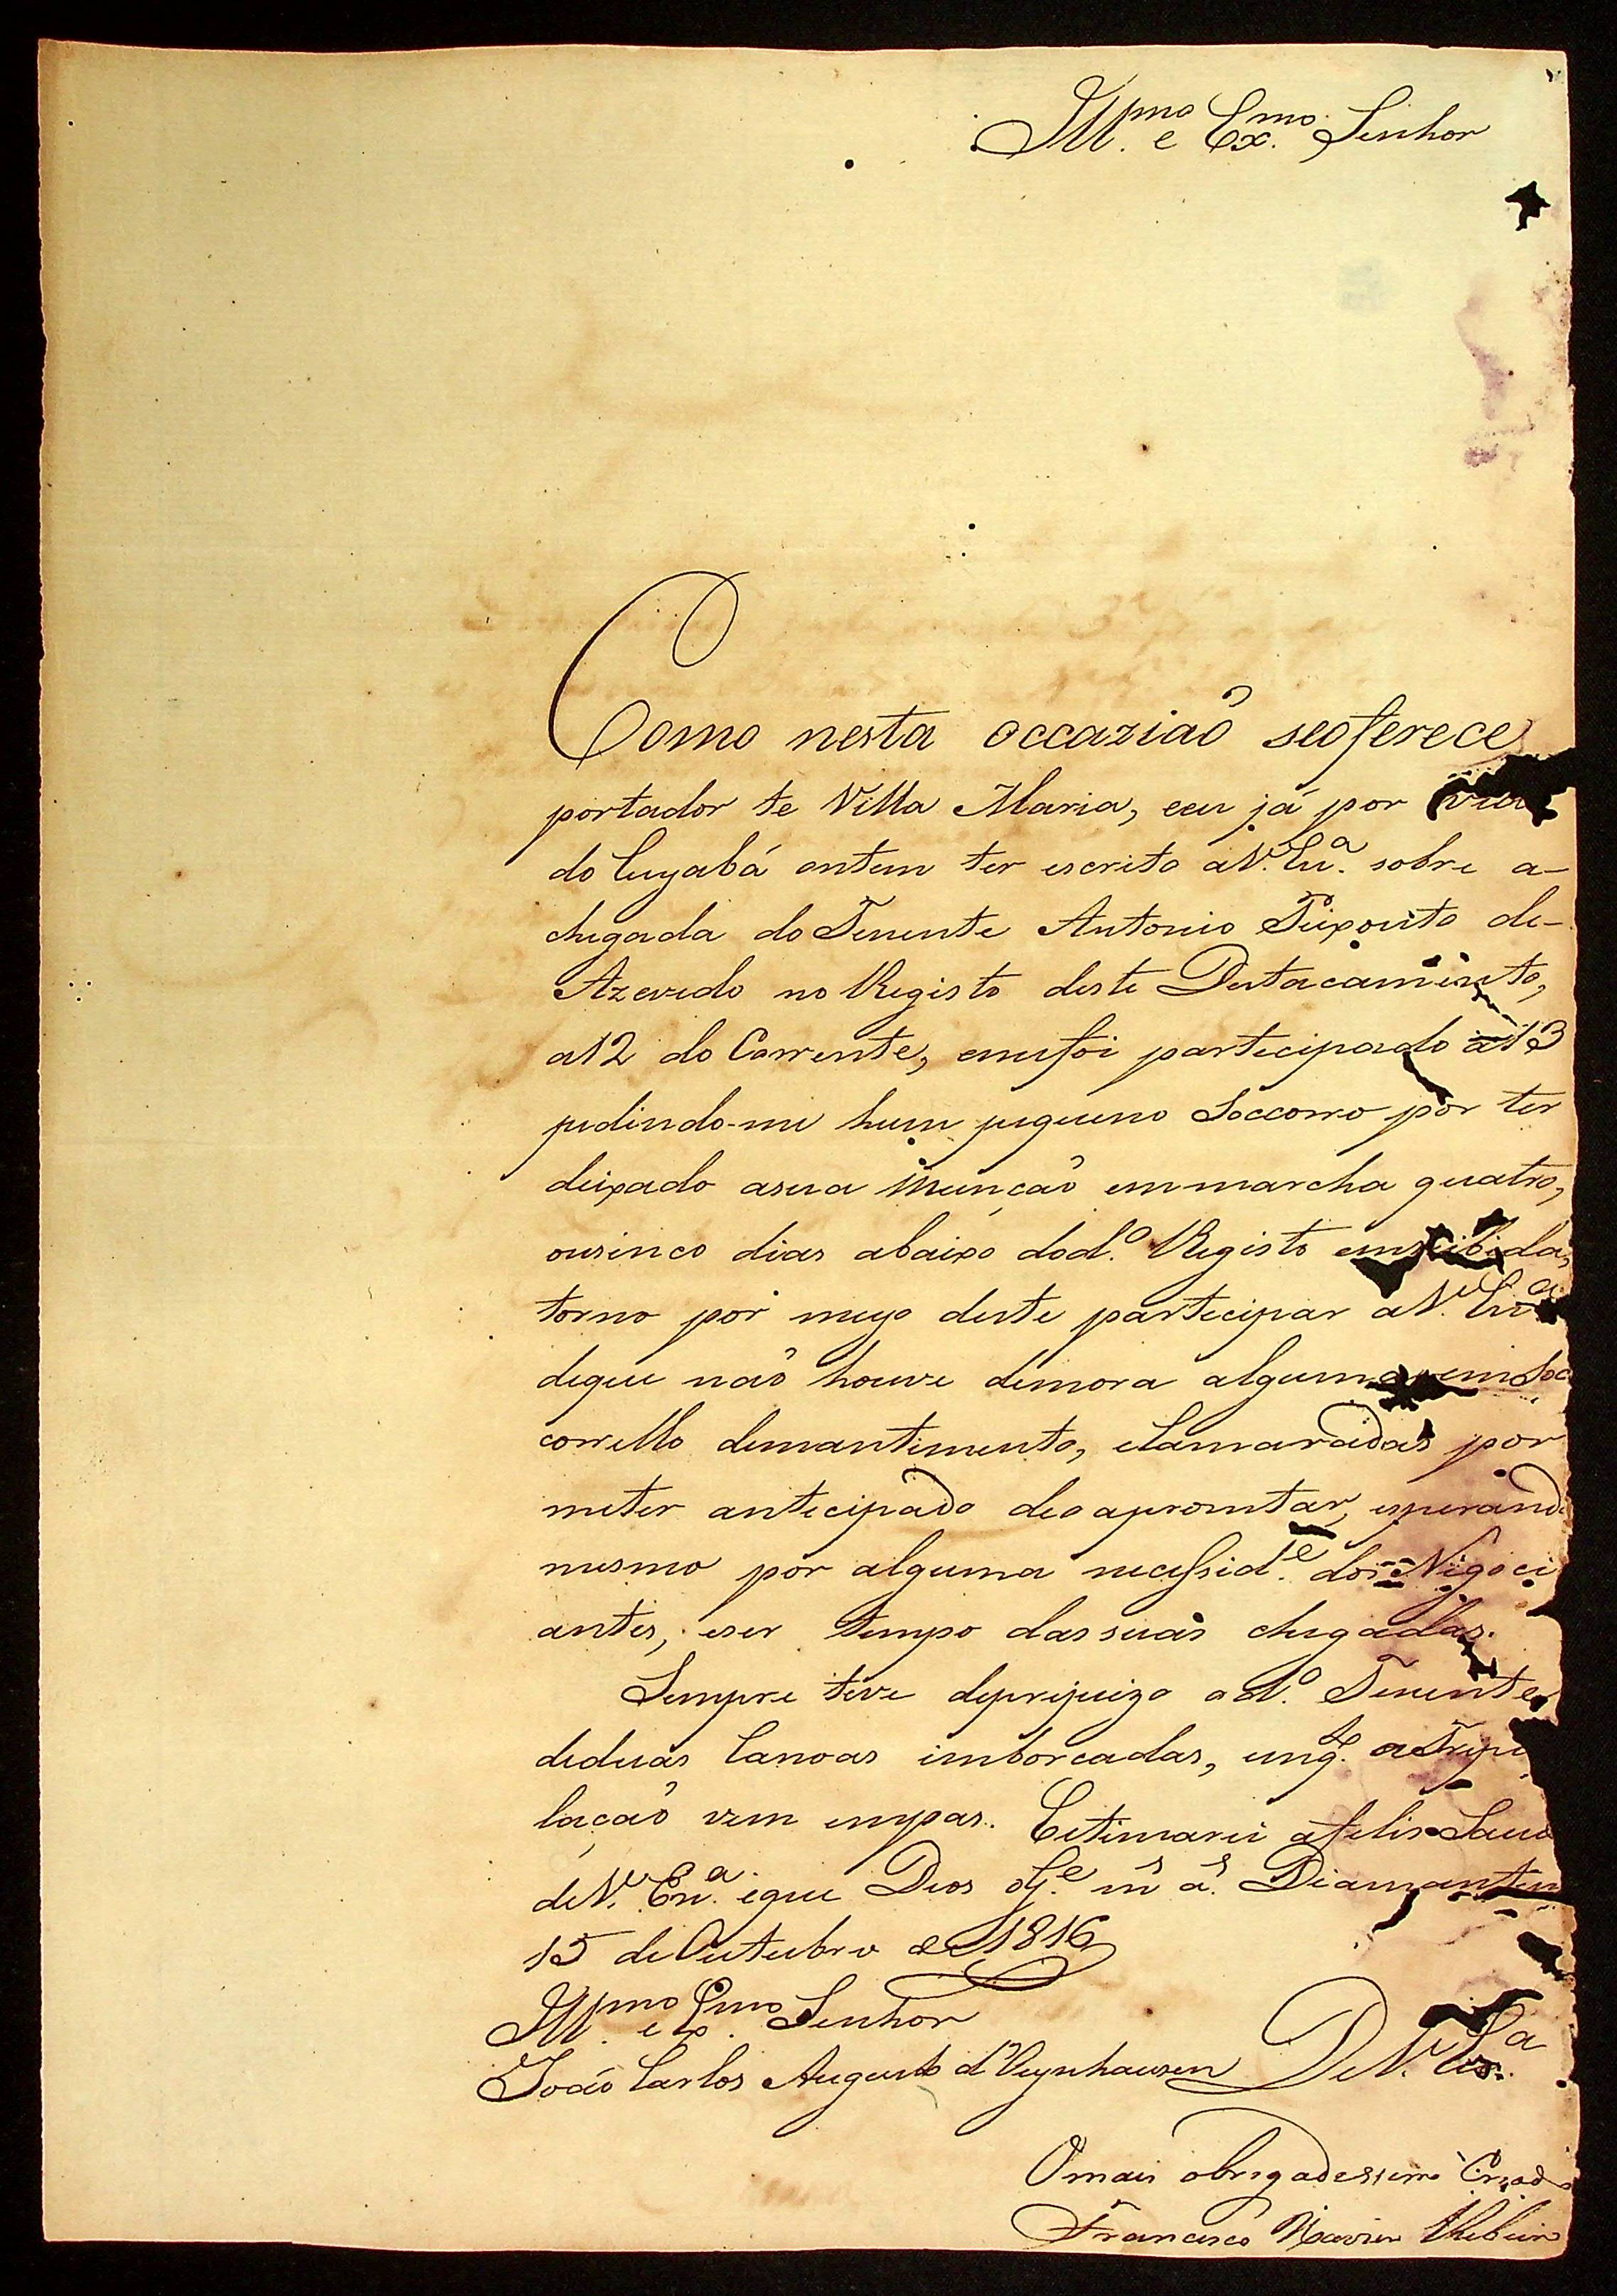 Ill.mo e Ex.mo Senhor
Como nesta occaziaõ seoferece
portador te Villa Maria, eeu já por via
do Cuyabá ontem ter escrito aV. Ex.a sobre a-
chegada do Tenente Antonio Peixouto de-
Azevedo no Registo deste Destacamento,
a12 do Corrente, emefoi partecipado a13
pedindo-me hum pequeno Soccorro por ter
deixado asua Munçaõ emmarcha quatro,
ousinco dias abaixo dod.o Registo
torno por meyo deste partecipar aV. Ex.a
deque naõ houve demora alguma em Soc
corrello demantimento, eCamaradas por
meter antecipado deoapromtar, esperando
mesmo por alguma necessid.e dos Nigoci
antes, eser tempo dassuas chegadas.
Sempre teve deprejuizo od.o Tenente
deduas Canoas imborcadas, eng.to aTripu
laçaõ vem empas. Estimarei afelis Saud
deV. Ex.a eque Deos g.e m.s a.s Diamantin
15 de Outubro de 1816
Ill.mo e Ex.mo Senhor
João Carlos Augusto d'Oeynhausen DeV. Ex.a
Omais obrigadessimo Criado
Francisco Xavier Ribeiro